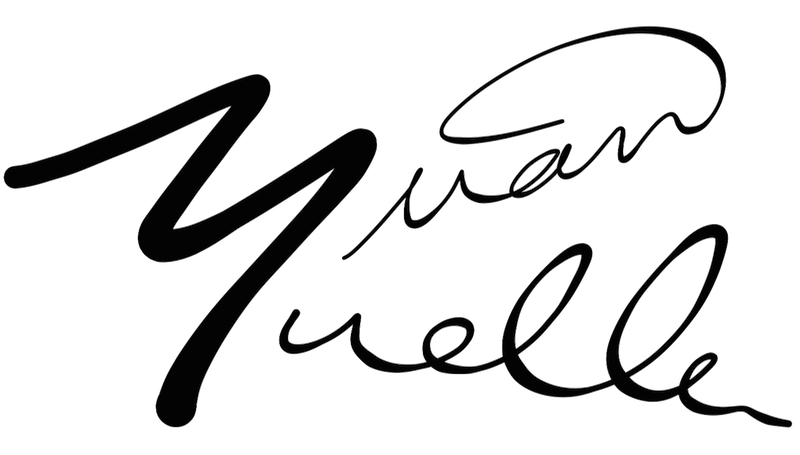 Yuan
Yuelle